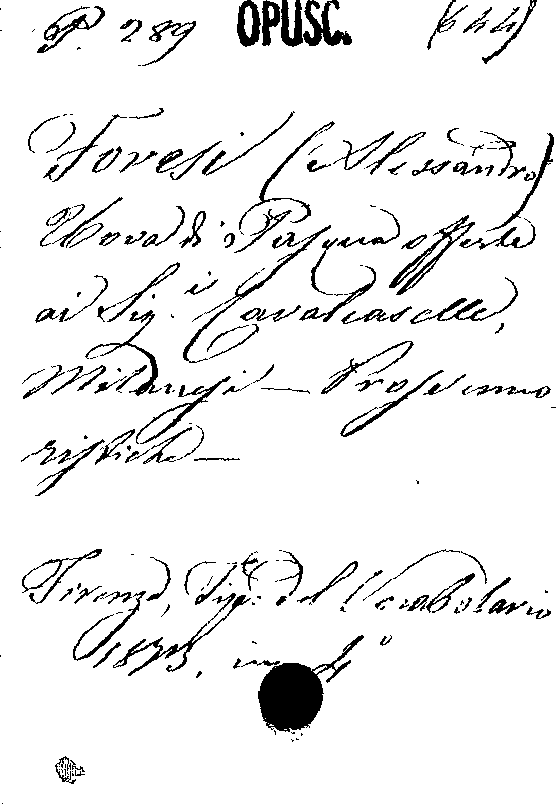 P. 289 OPUSC. (644)
Foresi (Alessandro)
Uova di Pasqua offerte
ai Sig.i Cavalcaselle,
Milanesi — Prose umo-
ristiche —
Firenze, Tipe. del Vocabolario
1873, in 4º